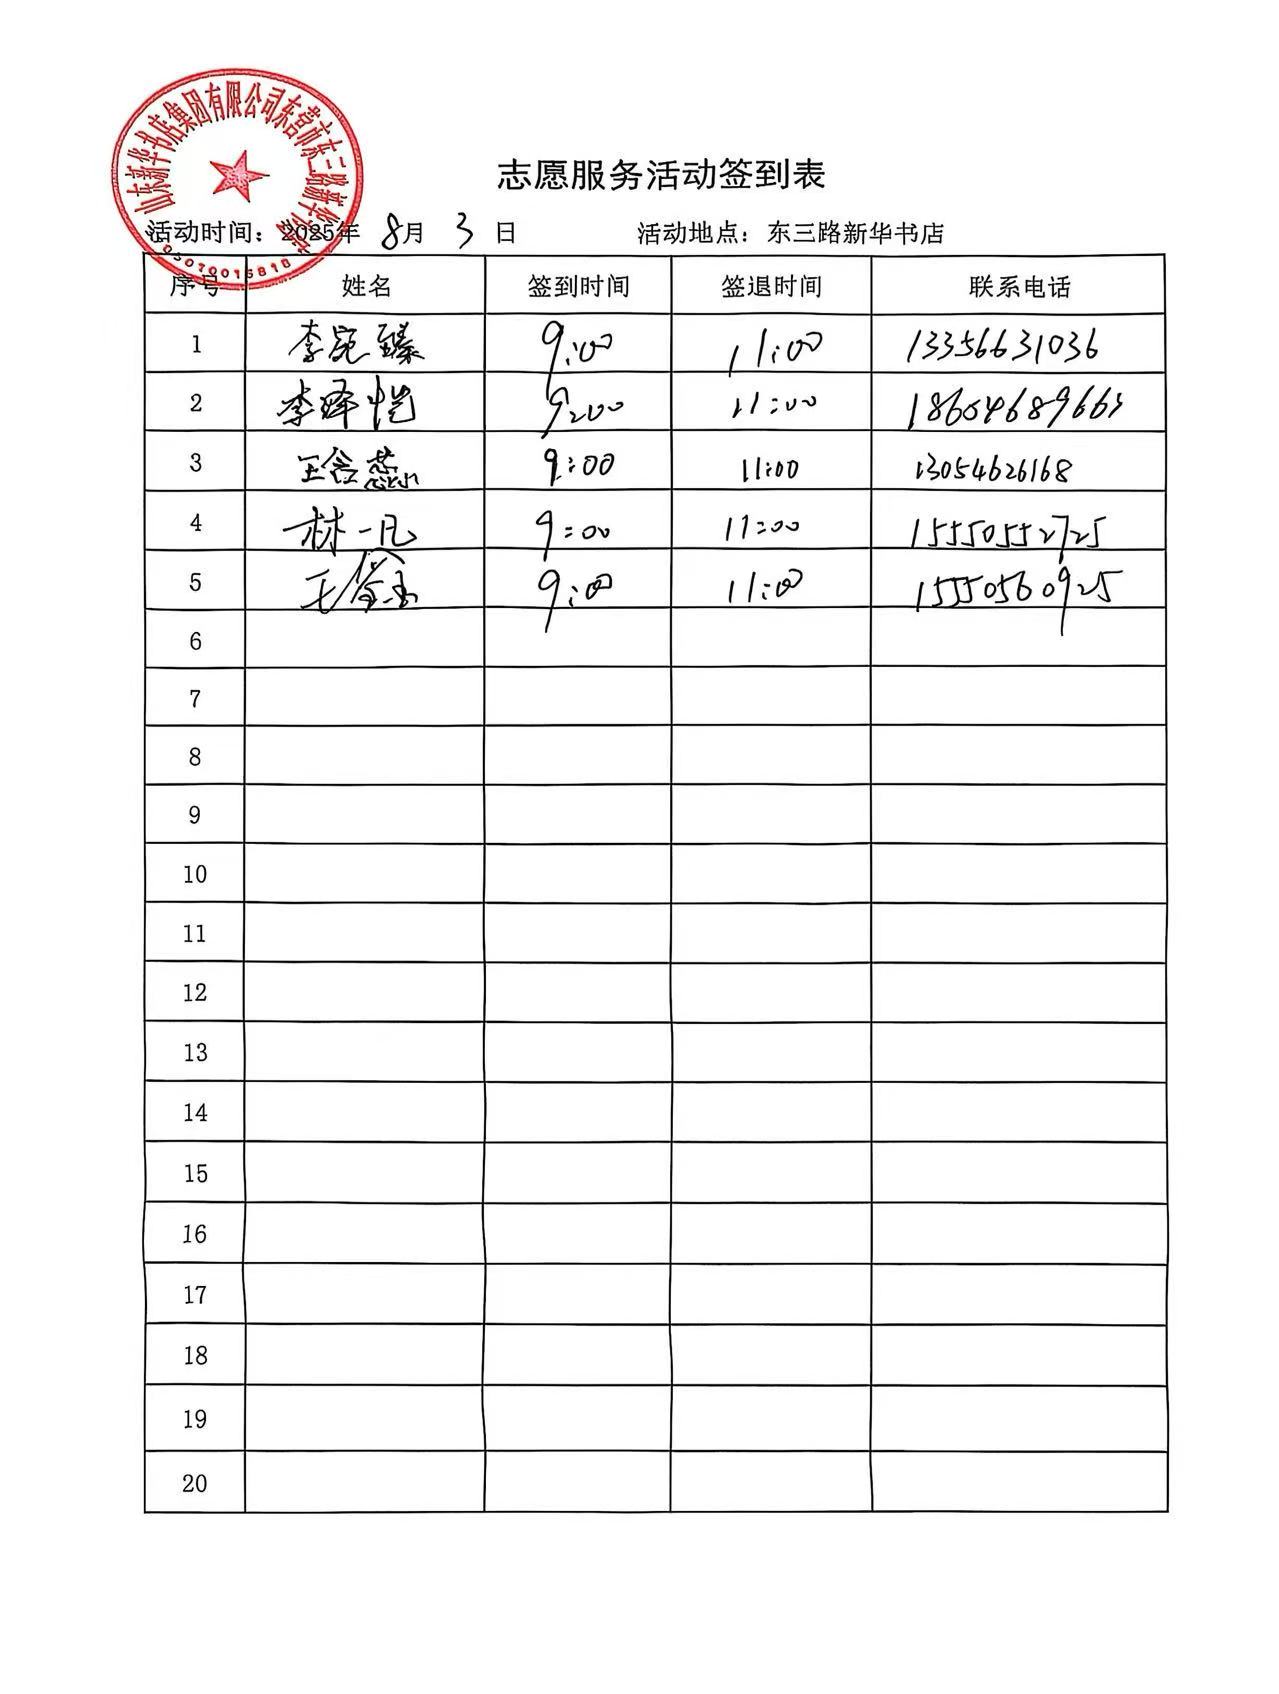 山东新华书店集团有限公司东营市东三路新华书店
志愿服务活动签到表
活动时间：2025年 8月 3 日 活动地点：东三路新华书店
序号 姓名 签到时间 签退时间 联系电话
1 李宛臻 9:00 11:00 13356631036
2 李泽恺 9:00 11:00 18654689663
3 王含蕊 9:00 11:00 13054626168
4 林一凡 9:00 11:00 15550552725
5 9:00 11:00 15550560925
6
7
8
9
10
11
12
13
14
15
16
17
18
19
20